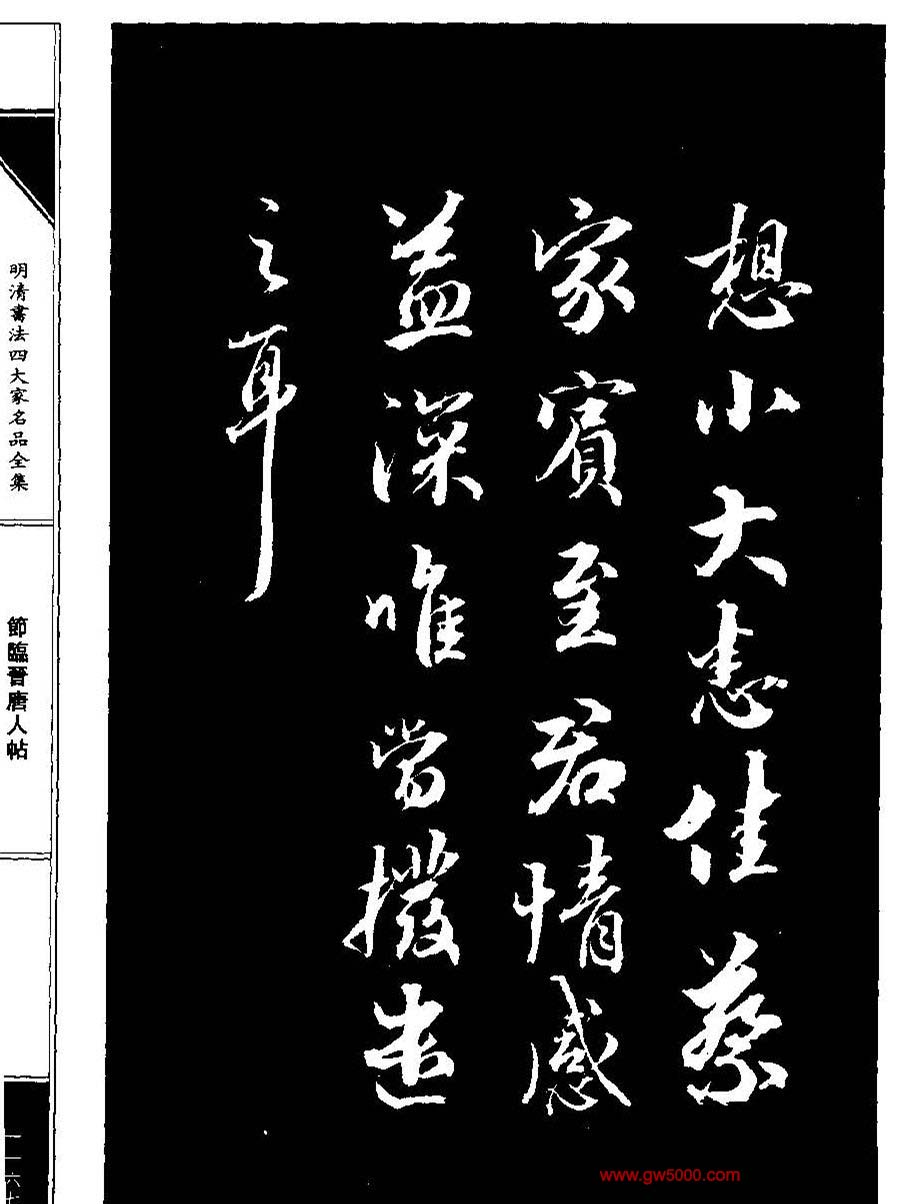 想小大悉佳蔡
家賓至君情感
益深唯當撥遣
之耳
明清書法四大家名品全集
節臨晉唐人帖
www.gw5000.com